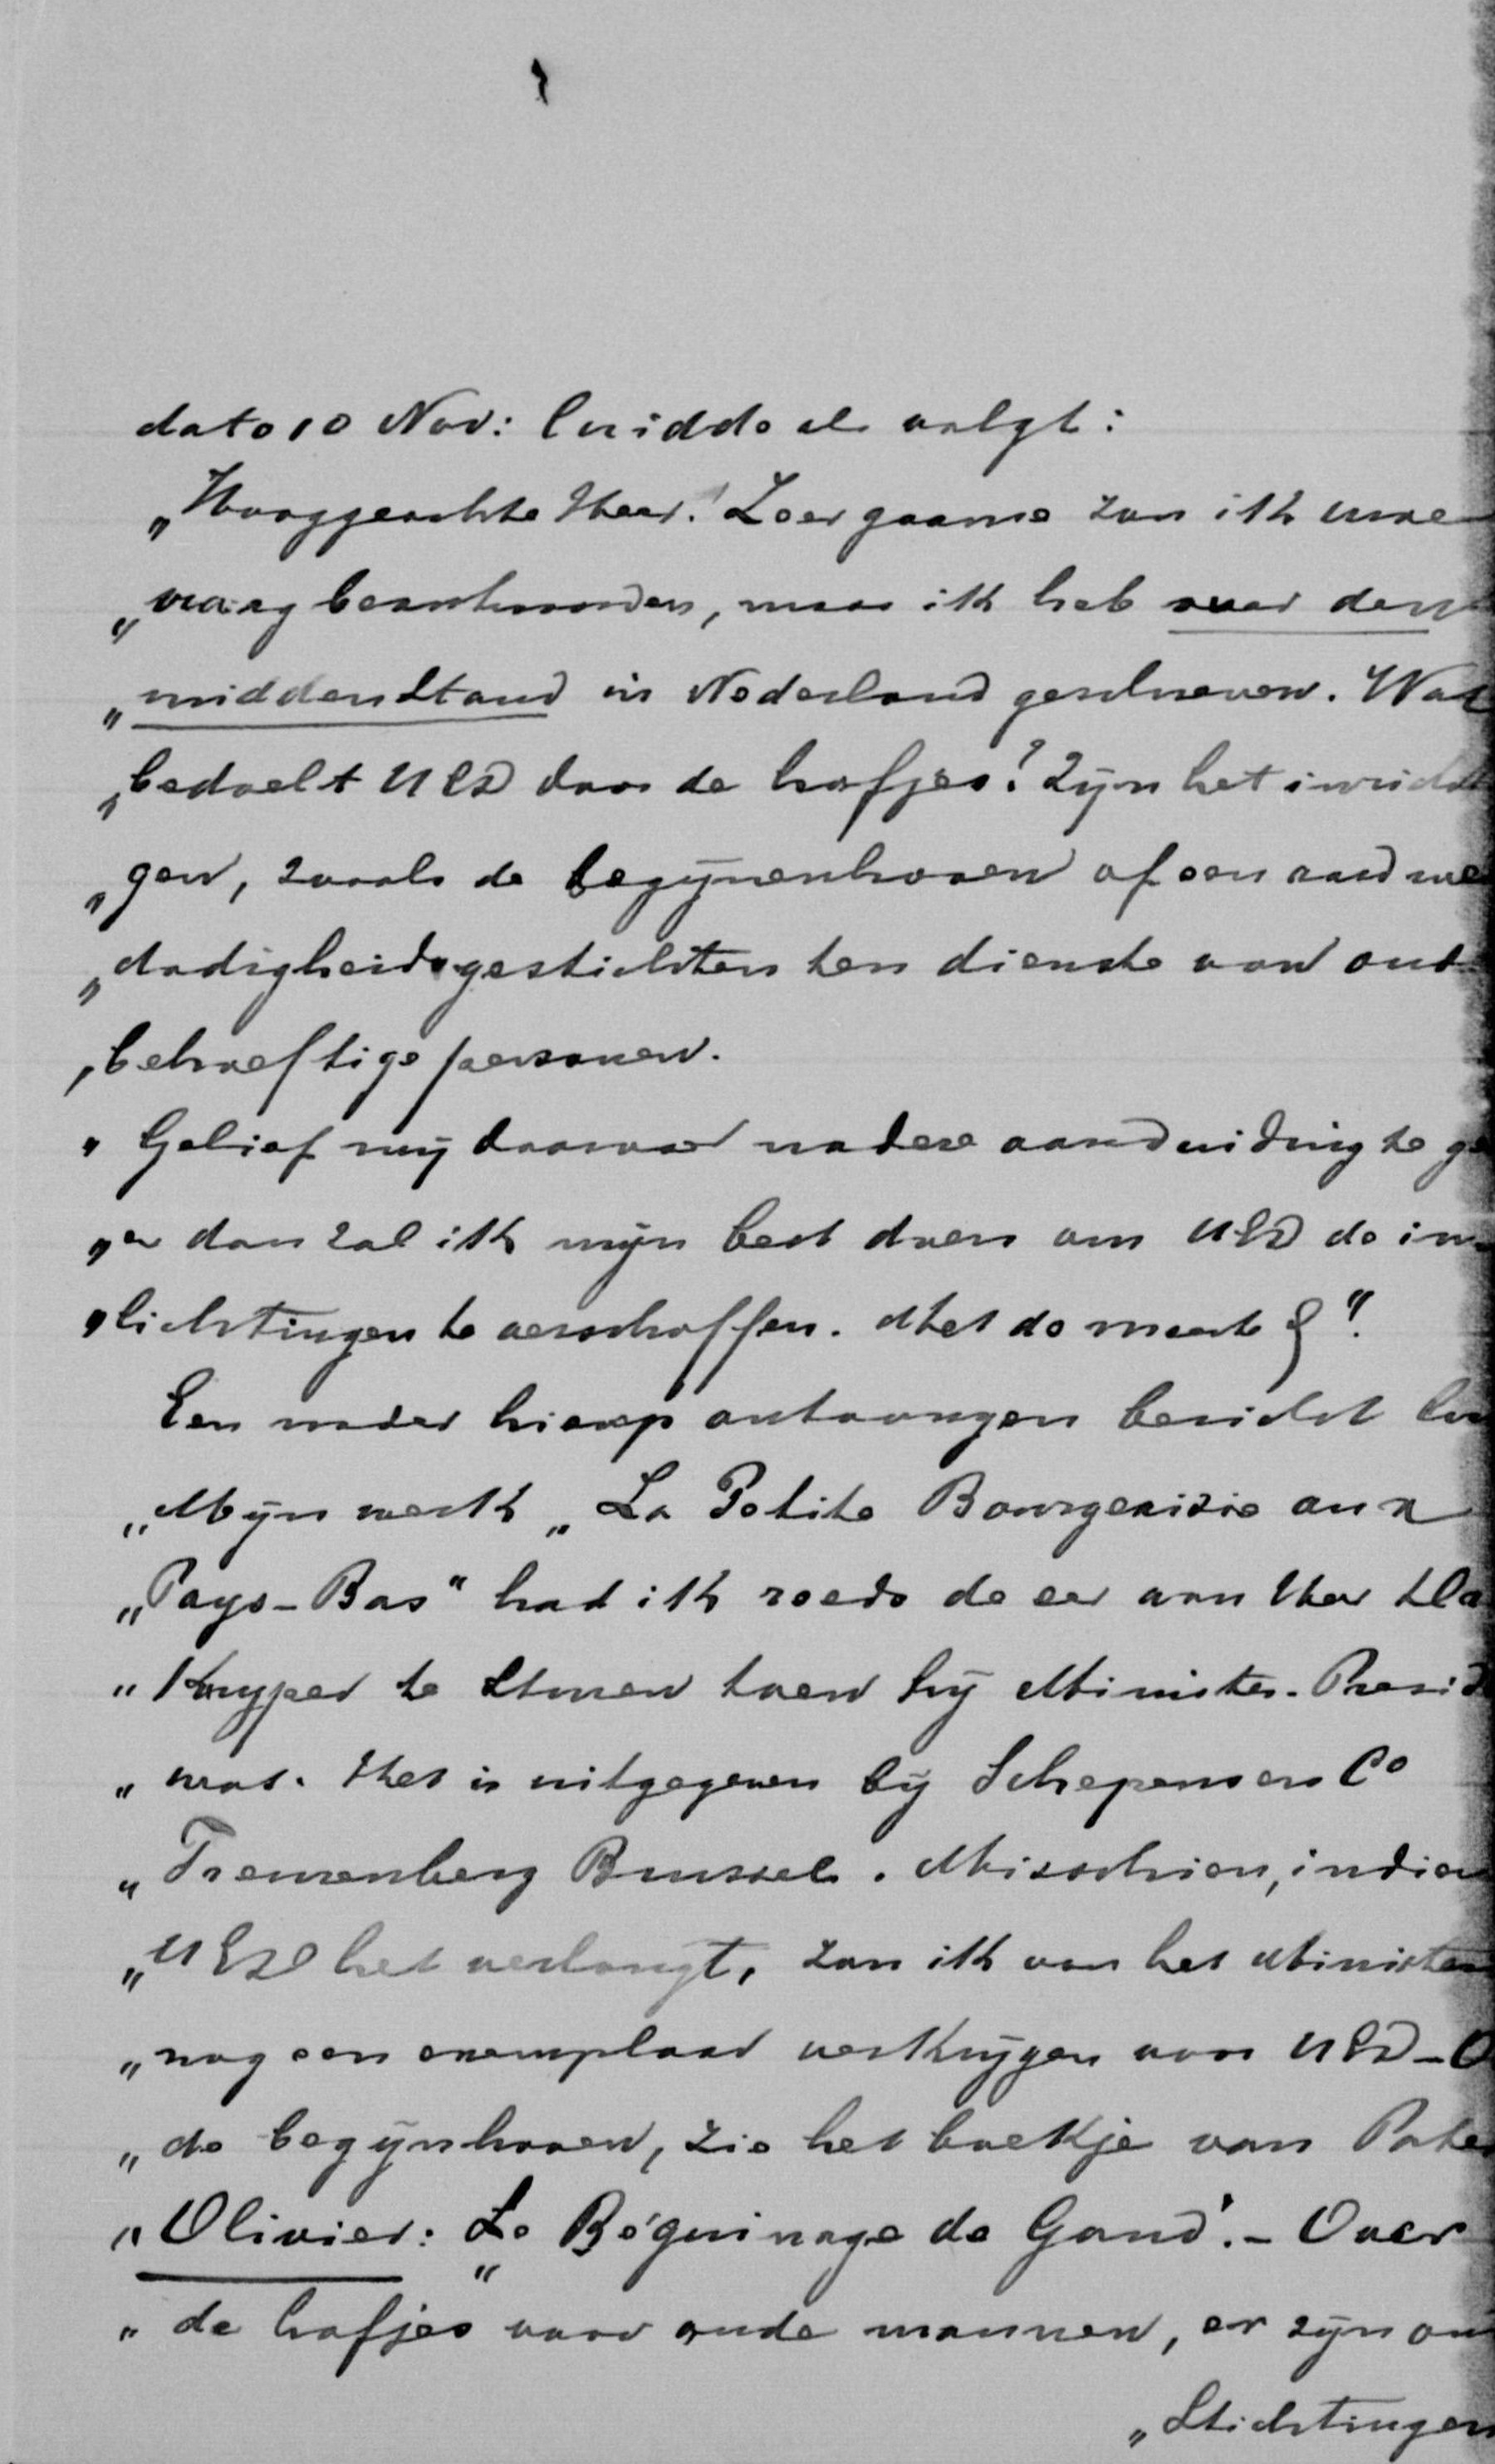 dato 10 Nov: luidde als volgt:
„Hooggeachte Heer! Zeer gaarne zou ik uwe
„vraag beantwoorden, maar ik heb over den
„middenstand in Nederland geschreven. Wat
„bedoelt UEd door de hofjes? Zijn het inricht
„gen, zooals de begijnenhoven of een aard wel
„dadigheidsgestichten ten dienste van oud
„behoeftige personen.
„Gelief mij daarover nadere aanduiding te ge
„en dan zal ik mijn best doen om UEd de in-
„lichtingen te verschaffen. Met de meeste &".
Een nader hierop ontvangen bericht lu
„Mijn werk „La Petite Bourgeoisie aux
„Pays-Bas" had ik reeds de eer aan Heer
„Kuyper te sturen toen hij Minister-Presid
„was. Het is uitgegeven bij Schepens en Co
„Treurenberg Brussel. Misschien, indien
„UEd het verlangt, zou ik van het Ministe
„nog een exemplaar verkrijgen voor UEd - O
„de begijnhoven, zie het boekje van Pater
„Olivier: „Le Béguinage de Gand". - Over
„de hofjes voor oude mannen, er zijn ou
„Stichtingen